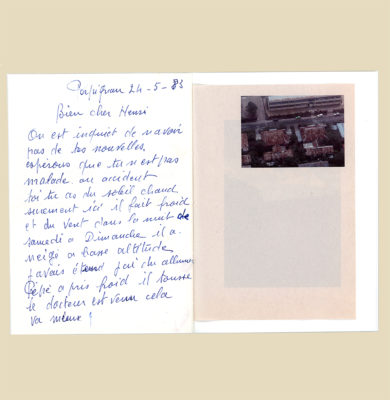 Perpignan 24-5-83
Bien cher Henri
On est inquiet de n avoir
pas de tes nouvelles
espérons que tu n est pas
malade ou accident
toi tu as du soleil chaud
surement ici il fait froid
et du vent dans la nuit de
samedi a Dimanche il a
neigé a basse altitude
j avais j ai du allumer
Pépé a pris froid il tousse
le docteur est venu cela
va mieux